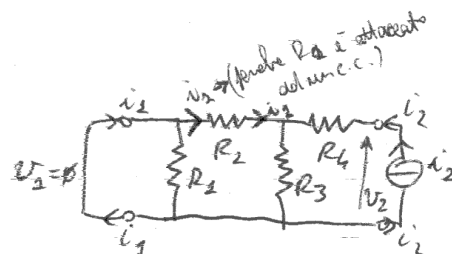 i₁
i₁ → (perché R₁ è attaccato
ad un c.c.)
i₁
i₂
R₂
R₄
v₁=∅
R₁
R₃
v₂
i₂
i₁
i₂